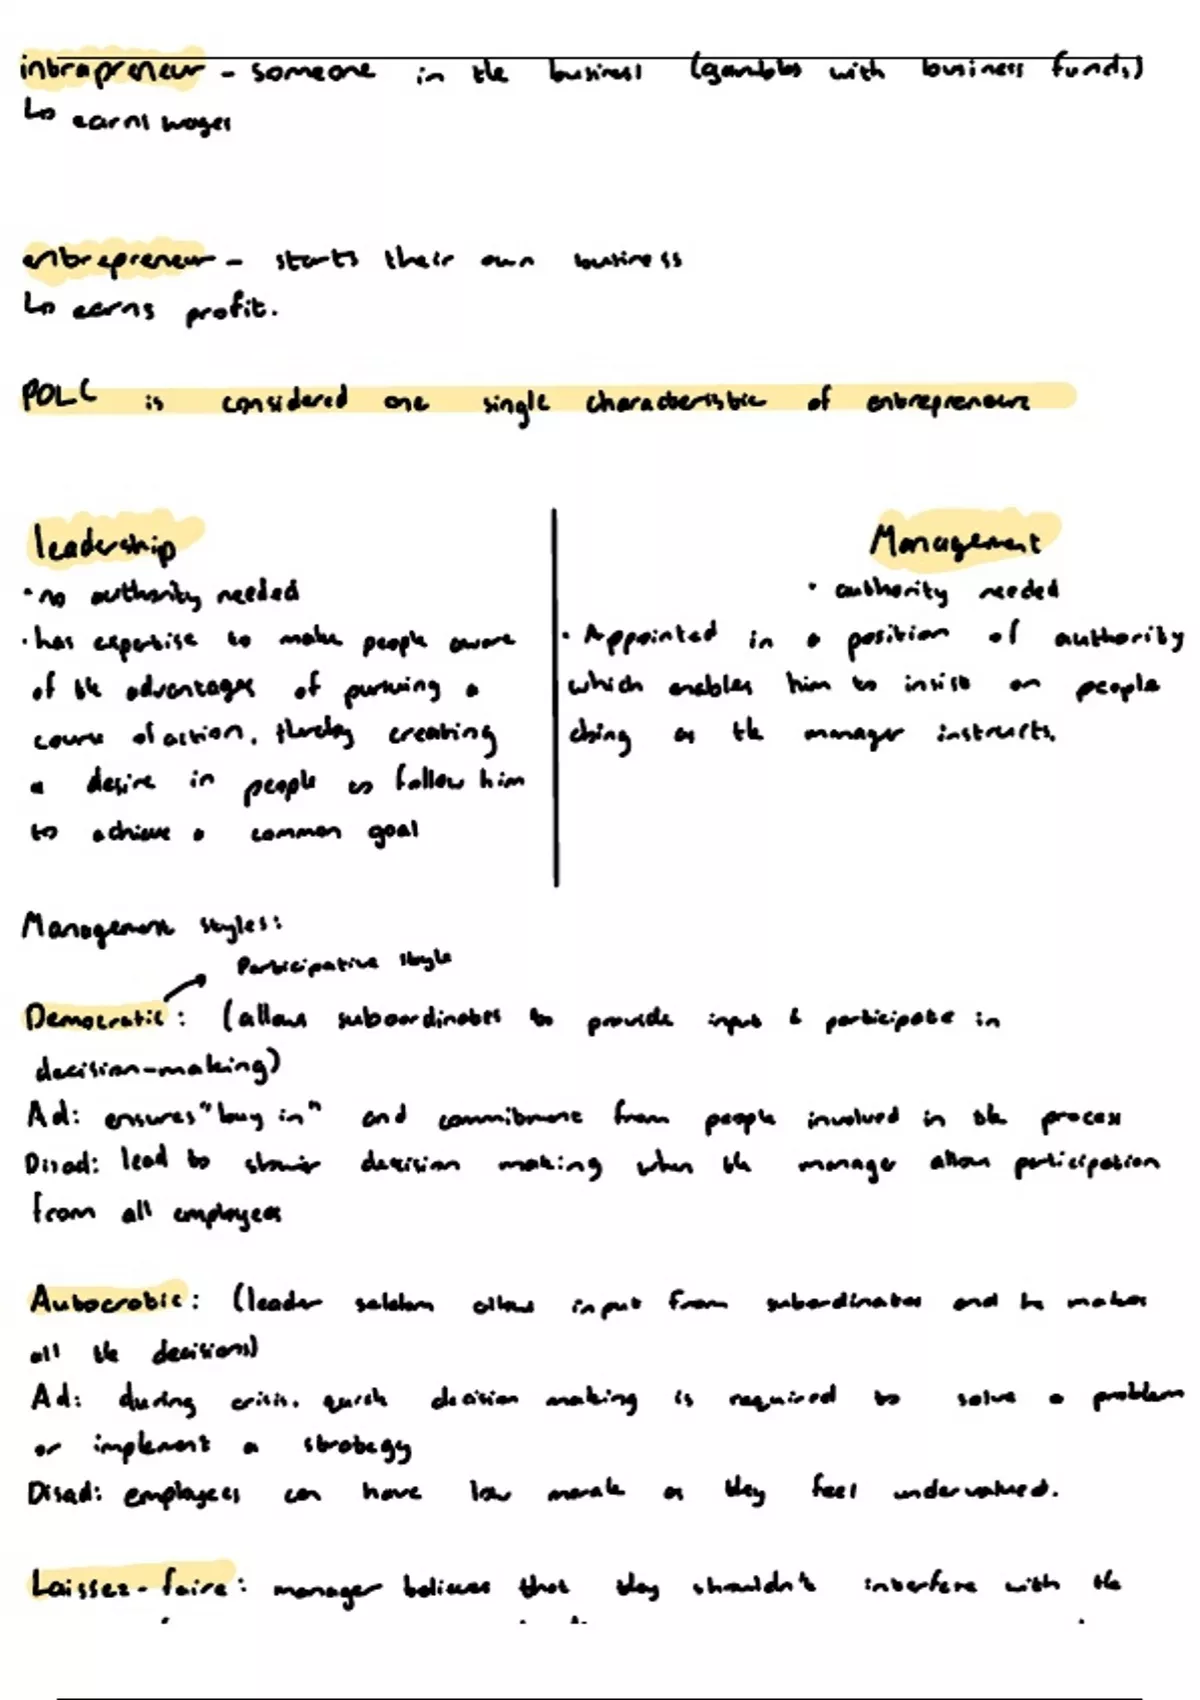 intrapreneur - someone in the business (gambles with business funds)
↳ earns wages
entrepreneur - starts their own business
↳ earns profit.
POLC is considered one single characteristic of entrepreneurs
leadership
• no authority needed
• has expertise to make people aware
of the advantages of pursuing a
course of action, thereby creating
a desire in people to follow him
to achieve a common goal
Management
• authority needed
• Appointed in a position of authority
which enables him to insist on people
doing as the manager instructs.
Management styles:
Participative style
Democratic: (allows subordinates to provide input & participate in
decision-making)
Ad: ensures "buy in" and commitment from people involved in the process
Disad: lead to slower decision making when the manager allows participation
from all employees
Autocratic: (leader seldom allows input from subordinates and he makes
all the decisions)
Ad: during crisis, quick decision making is required to solve a problem
or implement a strategy
Disad: employees can have low morale as they feel undervalued.
Laissez-faire: manager believes that they shouldn't interfere with the